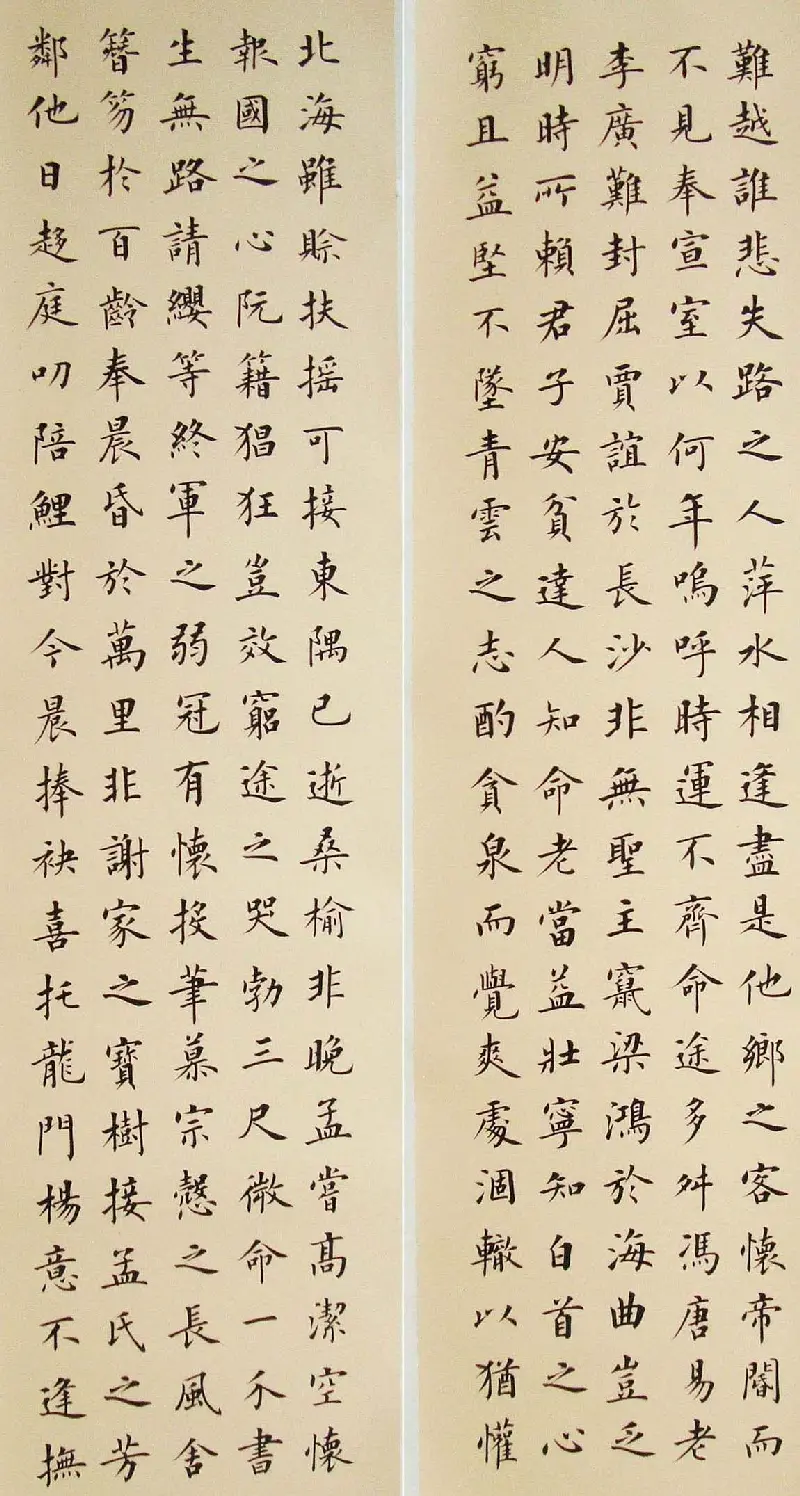 難越誰悲失路之人萍水相逢盡是他鄉之客懷帝閽而
不見奉宣室以何年嗚呼時運不齊命途多舛馮唐易老
李廣難封屈賈誼於長沙非無聖主竄梁鴻於海曲豈乏
明時所賴君子安貧達人知命老當益壯寧知白首之心
窮且益堅不墜青雲之志酌貪泉而覺爽處涸轍以猶懽
北海雖賒扶搖可接東隅已逝桑榆非晚孟嘗高潔空懷
報國之心阮籍猖狂豈效窮途之哭勃三尺微命一介書
生無路請纓等終軍之弱冠有懷投筆慕宗慤之長風舍
簪笏於百齡奉晨昏於萬里非謝家之寶樹接孟氏之芳
鄰他日趍庭叨陪鯉對今晨捧袂喜托龍門楊意不逢撫